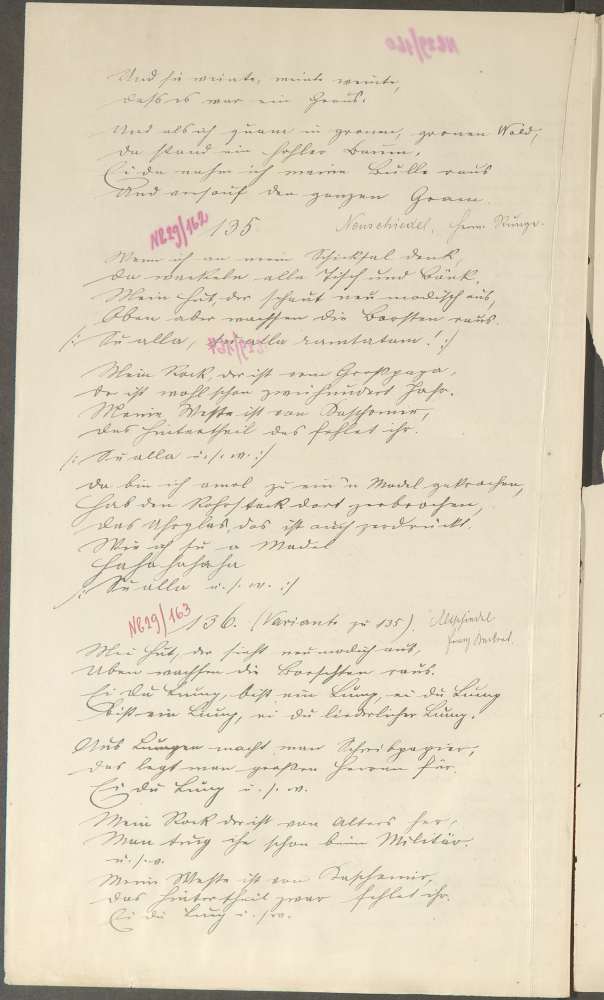 Und sie weinte, weinte, weinte,
Daß es war ein Graus.
Und als ich quam in gronen, gronen Wald,
Da stand ein hohler Baum.
Ei da nahm ich meine Bulle raus
Und versauf den ganzen Gram.
NB29/162 135. Neuschiedel, Herr Runge.
Wenn ich an mein Schicksal denk,
Da wackeln alle Tisch und Bänk.
Mein Hut, der schaut neu modisch aus,
Oben aber wachsen die Borsten raus.
/: Su alla, su alla ramtatam! :/
Mein Rock, der ist vom Großpapa,
Er ist wohl schon zweihundert Jahr.
Meine Weste ist von
Das Hintertheil das fehlet ihr.
/: Su alla u. s. w. :/
Da bin ich amol zu ein'n Madel gekrochen,
Hab den Rohrstock dort zerbrochen,
Das Uhrglas, das ist auch zerdrückt.
Wie ich su a Madel
Hahahahaha
/: Su alla u. s. w. :/
NB29/163 136. (Variante zu 135) Altschiedel
Franz
Mei Hut, der sieht neumodisch aus,
Uben wachsen die Borschten raus.
Ei du Lump, bist ein Lump, ei du Lump
Bist ein Lump, ei du liederlicher Lump.
Aus Lumpen macht man Schreibpapier,
Das legt man großen Herren für.
Ei du Lump u. s. w.
Mein Rock der ist von Alters her,
Man trug ihn schon beim Militär.
u. s. w.
Meine Weste ist von Caschemir,
Das Hintertheil zwar fehlet ihr.
Ei du Lump u. s. w.